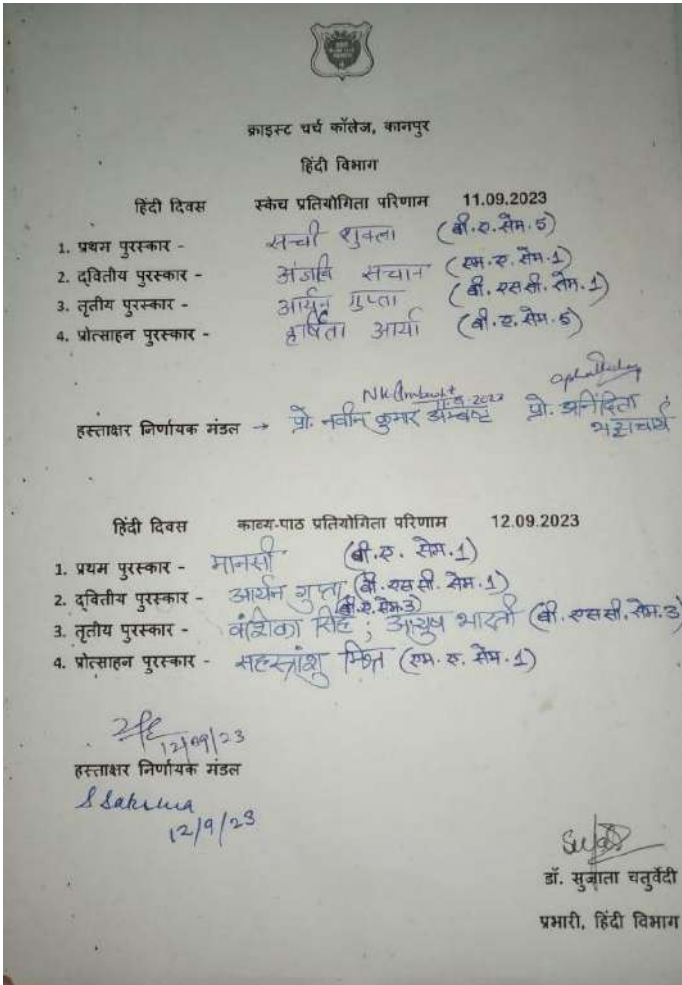 क्राइस्ट चर्च कॉलेज, कानपुर
हिंदी विभाग
हिंदी दिवस स्केच प्रतियोगिता परिणाम 11.09.2023
1. प्रथम पुरस्कार - सच्ची शुक्ला (बी.ए.सेम.5)
2. द्वितीय पुरस्कार - अंजलि सचान (एम.ए.सेम.1)
3. तृतीय पुरस्कार - आर्यन गुप्ता (बी.एससी.सेम.1)
4. प्रोत्साहन पुरस्कार - हर्षिता आर्या (बी.ए.सेम.5)
हस्ताक्षर निर्णायक मंडल → प्रो. नवीन कुमार अम्बष्ट प्रो. अनिंदिता
भट्टाचार्य
हिंदी दिवस काव्य-पाठ प्रतियोगिता परिणाम 12.09.2023
1. प्रथम पुरस्कार - मानसी (बी.ए. सेम.1)
2. द्वितीय पुरस्कार - आर्यन गुप्ता (बी.एससी. सेम.1)
(बी.ए.सेम.3)
3. तृतीय पुरस्कार - वंशिका सिंह ; आयुष भारती (बी.एससी.सेम.3)
4. प्रोत्साहन पुरस्कार - सहस्त्रांशु मिश्र (एम.ए.सेम.1)
12/09/23
हस्ताक्षर निर्णायक मंडल
12/9/23
डॉ. सुजाता चतुर्वेदी
प्रभारी, हिंदी विभाग